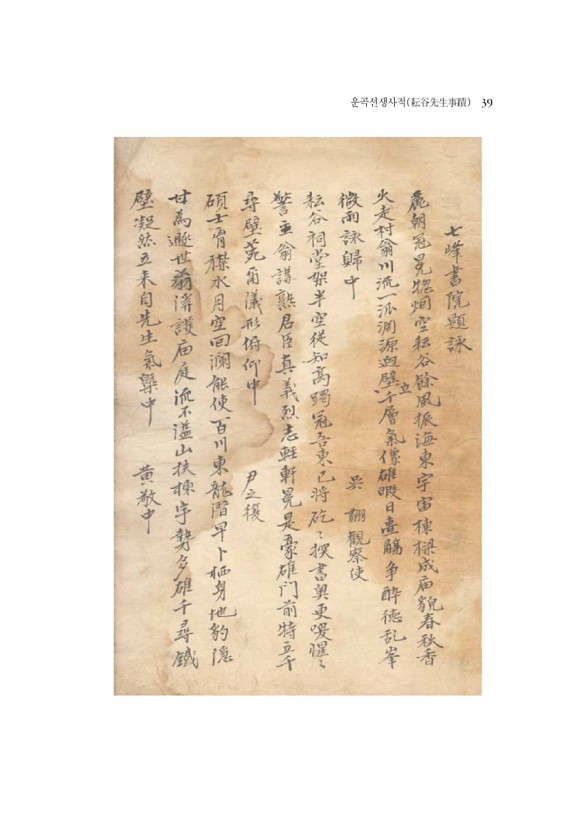 운곡선생사적(耘谷先生事蹟) 39
七峰書院題詠
麗朝冠冕揔烟空耘谷餘風振海東宇宙棟樑成庙貌春秋香
火走村翁川流一派淵源逈壁立千層氣像雄暇日壺觴爭醉德乱峯
微雨詠歸中 吳 翿觀察使
耘谷祠堂架半空從知高躅冠吾東已將矻〻探書奧更喚惺〻
警主翁講熟君臣真義烈志輕軒冕是豪雄门前特立千
尋壁菀爾儀形俯仰中 尹之復
碩士胷襟水月空回瀾能使百川東龍潛早卜栖身地豹隱
甘為遯世翁澗護庙庭流不溢山扶棟宇勢多雄千尋鐵
壁凝然立来自先生氣槩中 黃敬中